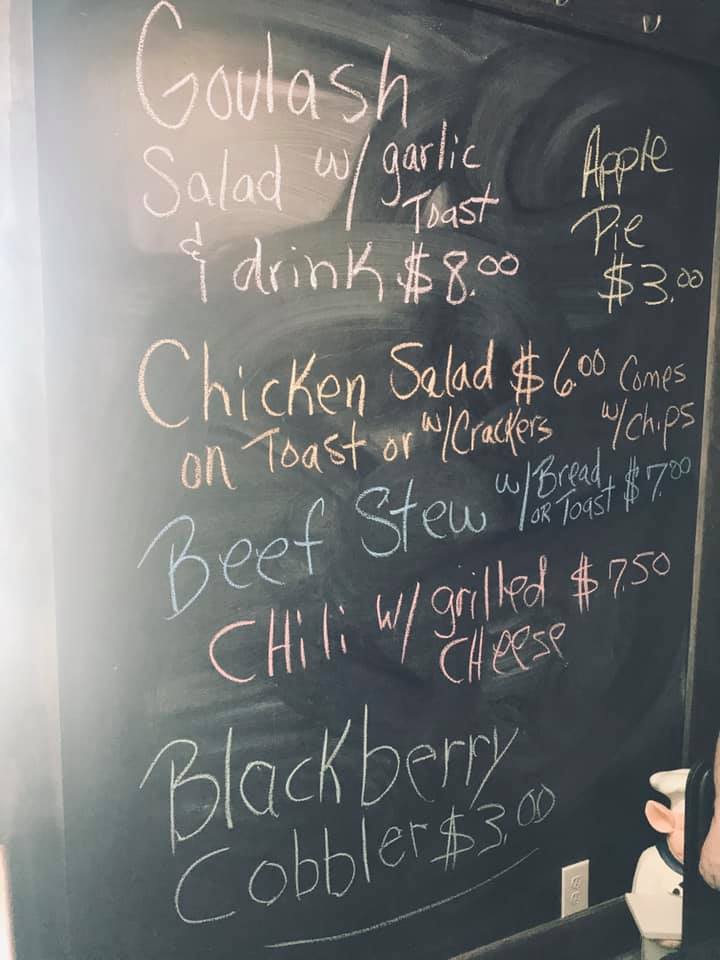 Goulash
Salad w/ garlic
Toast
& drink $8.00
Apple
Pie
$3.00
Chicken Salad $6.00 Comes
on Toast or w/Crackers w/chips
Beef Stew w/Bread $7.00
OR Toast
CHili w/ grilled $7.50
CHeese
Blackberry
Cobbler $3.00